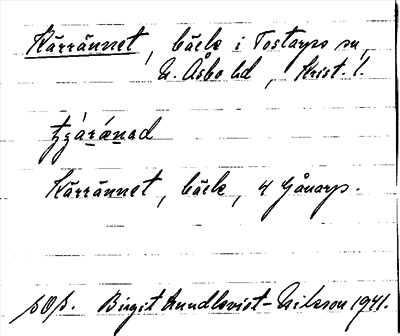 Kärrännet, bäck i Tostarps sn,
N. Åsbo hd, Krist. l.
Kärrännet, bäck, 4 Gånarp.
Birgit Lundqvist-Nilsson 1941.